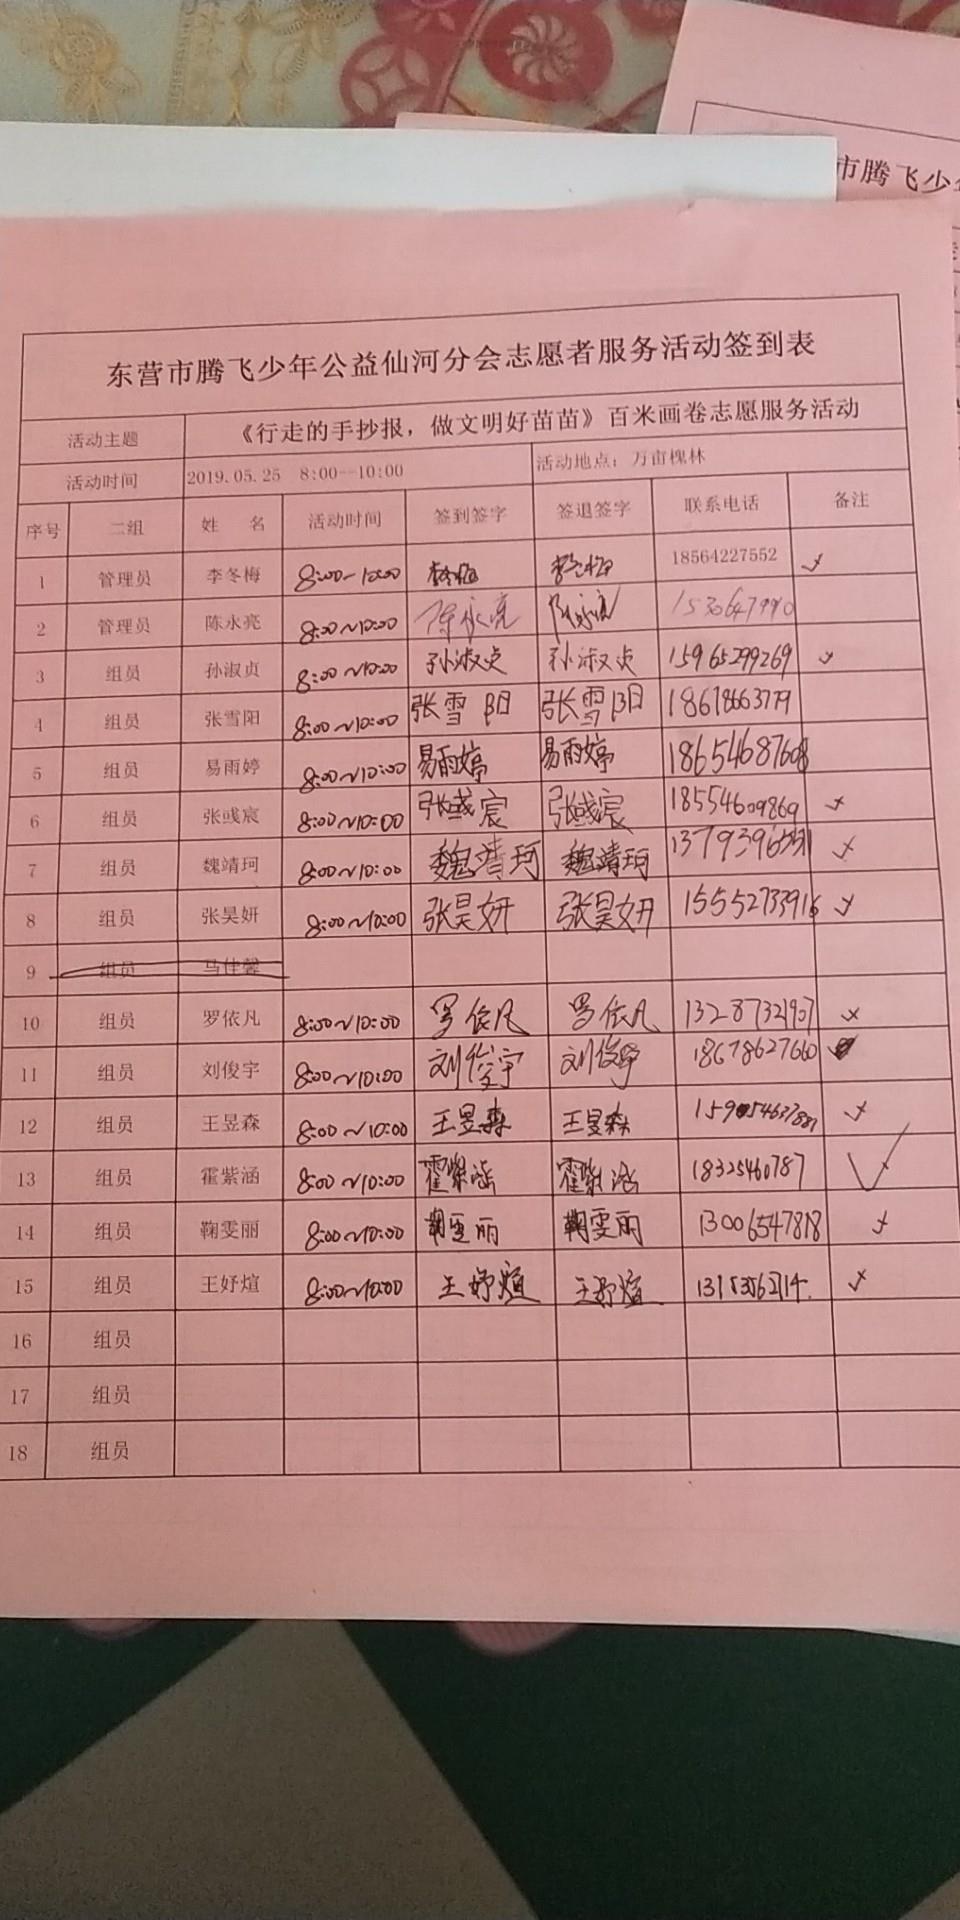 市腾飞少
东营市腾飞少年公益仙河分会志愿者服务活动签到表
活动主题 《行走的手抄报，做文明好苗苗》百米画卷志愿服务活动
活动时间 2019.05.25 8:00--10:00 活动地点：万亩槐林
序号 二组 姓 名 活动时间 签到签字 签退签字 联系电话 备注
1 管理员 李冬梅 8:00-10:00 李冬梅 李冬梅 18564227552 ✓
2 管理员 陈永亮 8:00~10:00 陈永亮 陈永亮
3 组员 孙淑贞 8:00~10:00 孙淑贞 孙淑贞 15965299269 ✓
4 组员 张雪阳 8:00~10:00 张雪阳 张雪阳 18678663779
5 组员 易雨婷 8:00~10:00 易雨婷 易雨婷 18654687608
6 组员 张彧宸 8:00~10:00 张彧宸 张彧宸 18554609869 ✓
7 组员 魏靖珂 8:00~10:00 魏靖珂 魏靖珂 ✓
8 组员 张昊妍 8:00~10:00 张昊妍 张昊妍 15552733916 ✓
9 组员 马佳馨
10 组员 罗依凡 8:00~10:00 罗依凡 罗依凡 13287321907 ✓
11 组员 刘俊宇 8:00~10:00 刘俊宇 刘俊宇 18678627660
12 组员 王昱森 8:00~10:00 王昱森 王昱森 ✓
13 组员 霍紫涵 8:00~10:00 霍紫涵 霍紫涵 18325460787 ✓
14 组员 鞠雯丽 8:00~10:00 鞠雯丽 鞠雯丽 13006547818 ✓
15 组员 王妤煊 8:00~10:00 王妤煊 王妤煊 ✓
16 组员
17 组员
18 组员